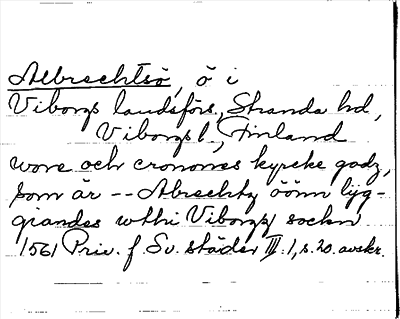 Albrechtsö, ö i
Viborgs landsförs., Stranda hd,
Viborgs l., Finland
wore och cronones kyrcke godz,
som är -- Abrechtz öönn lyg-
giandes wthi Viborgz sockn
1561 Priv. f. Sv. städer III:1, s. 20. avskr.